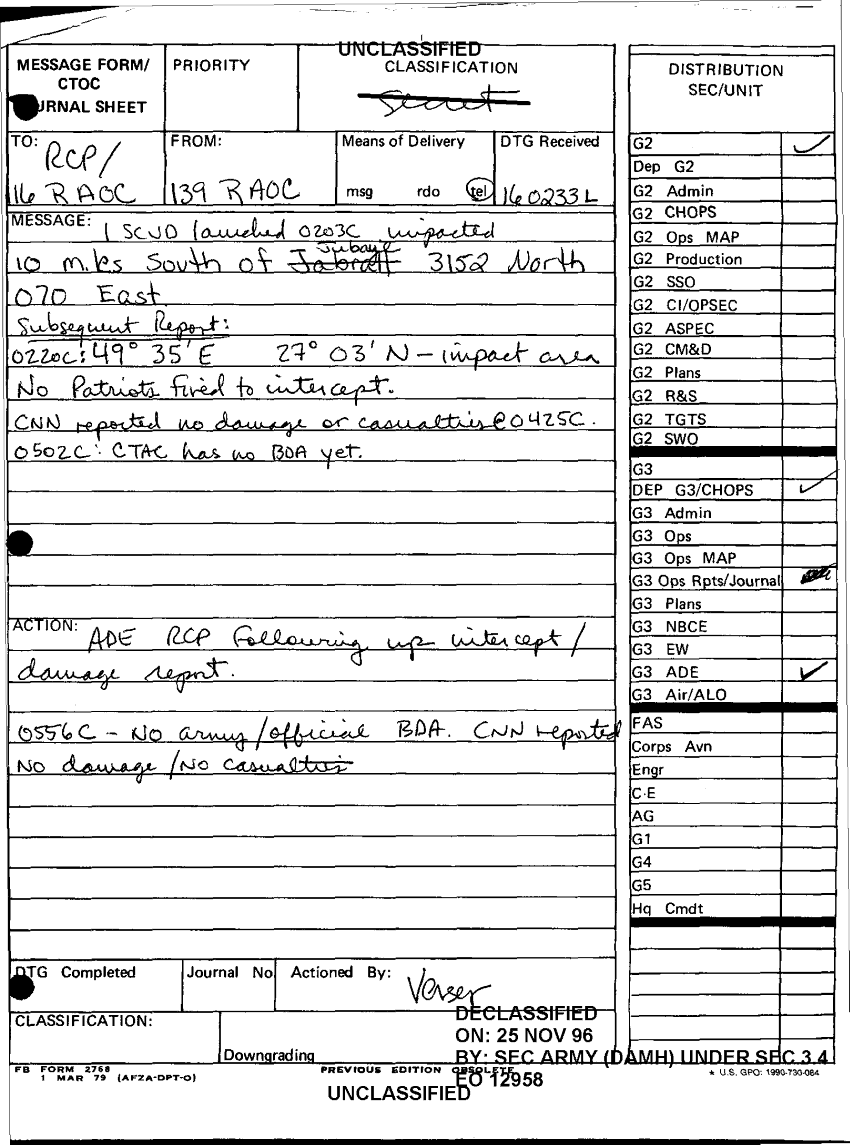 UNCLASSIFIED
MESSAGE FORM/
CTOC
URNAL SHEET
PRIORITY
CLASSIFICATION
Secret
TO: RCP/
16 RAOC
FROM:
139 RAOC
Means of Delivery
msg rdo tel
DTG Received
160233L
MESSAGE: 1 SCUD launched 0203C impacted
Jubayl
10 m.ks South of 3152 North
070 East.
Subsequent Report:
0220C: 49° 35' E 27° 03' N - impact area
No Patriots fired to intercept.
CNN reported no damage or casualties @ 0425C.
0502C: CTAC has no BDA yet.
ACTION: ADE RCP Following up intercept /
damage report.
0556C - No army/official BDA. CNN reported
No damage / No casualties
DTG Completed
Journal No
Actioned By:
Verser
CLASSIFICATION:
Downgrading
DECLASSIFIED
ON: 25 NOV 96
BY: SEC ARMY (DAMH) UNDER SEC 3.4
EO 12958
FB FORM 2768
1 MAR 79 (AFZA-DPT-O)
PREVIOUS EDITION OBSOLETE
* U.S. GPO: 1990-730-084
UNCLASSIFIED
DISTRIBUTION
SEC/UNIT
G2
Dep G2
G2 Admin
G2 CHOPS
G2 Ops MAP
G2 Production
G2 SSO
G2 CI/OPSEC
G2 ASPEC
G2 CM&D
G2 Plans
G2 R&S
G2 TGTS
G2 SWO
G3
DEP G3/CHOPS
G3 Admin
G3 Ops
G3 Ops MAP
G3 Ops Rpts/Journal
G3 Plans
G3 NBCE
G3 EW
G3 ADE
G3 Air/ALO
FAS
Corps Avn
Engr
C-E
AG
G1
G4
G5
Hq Cmdt